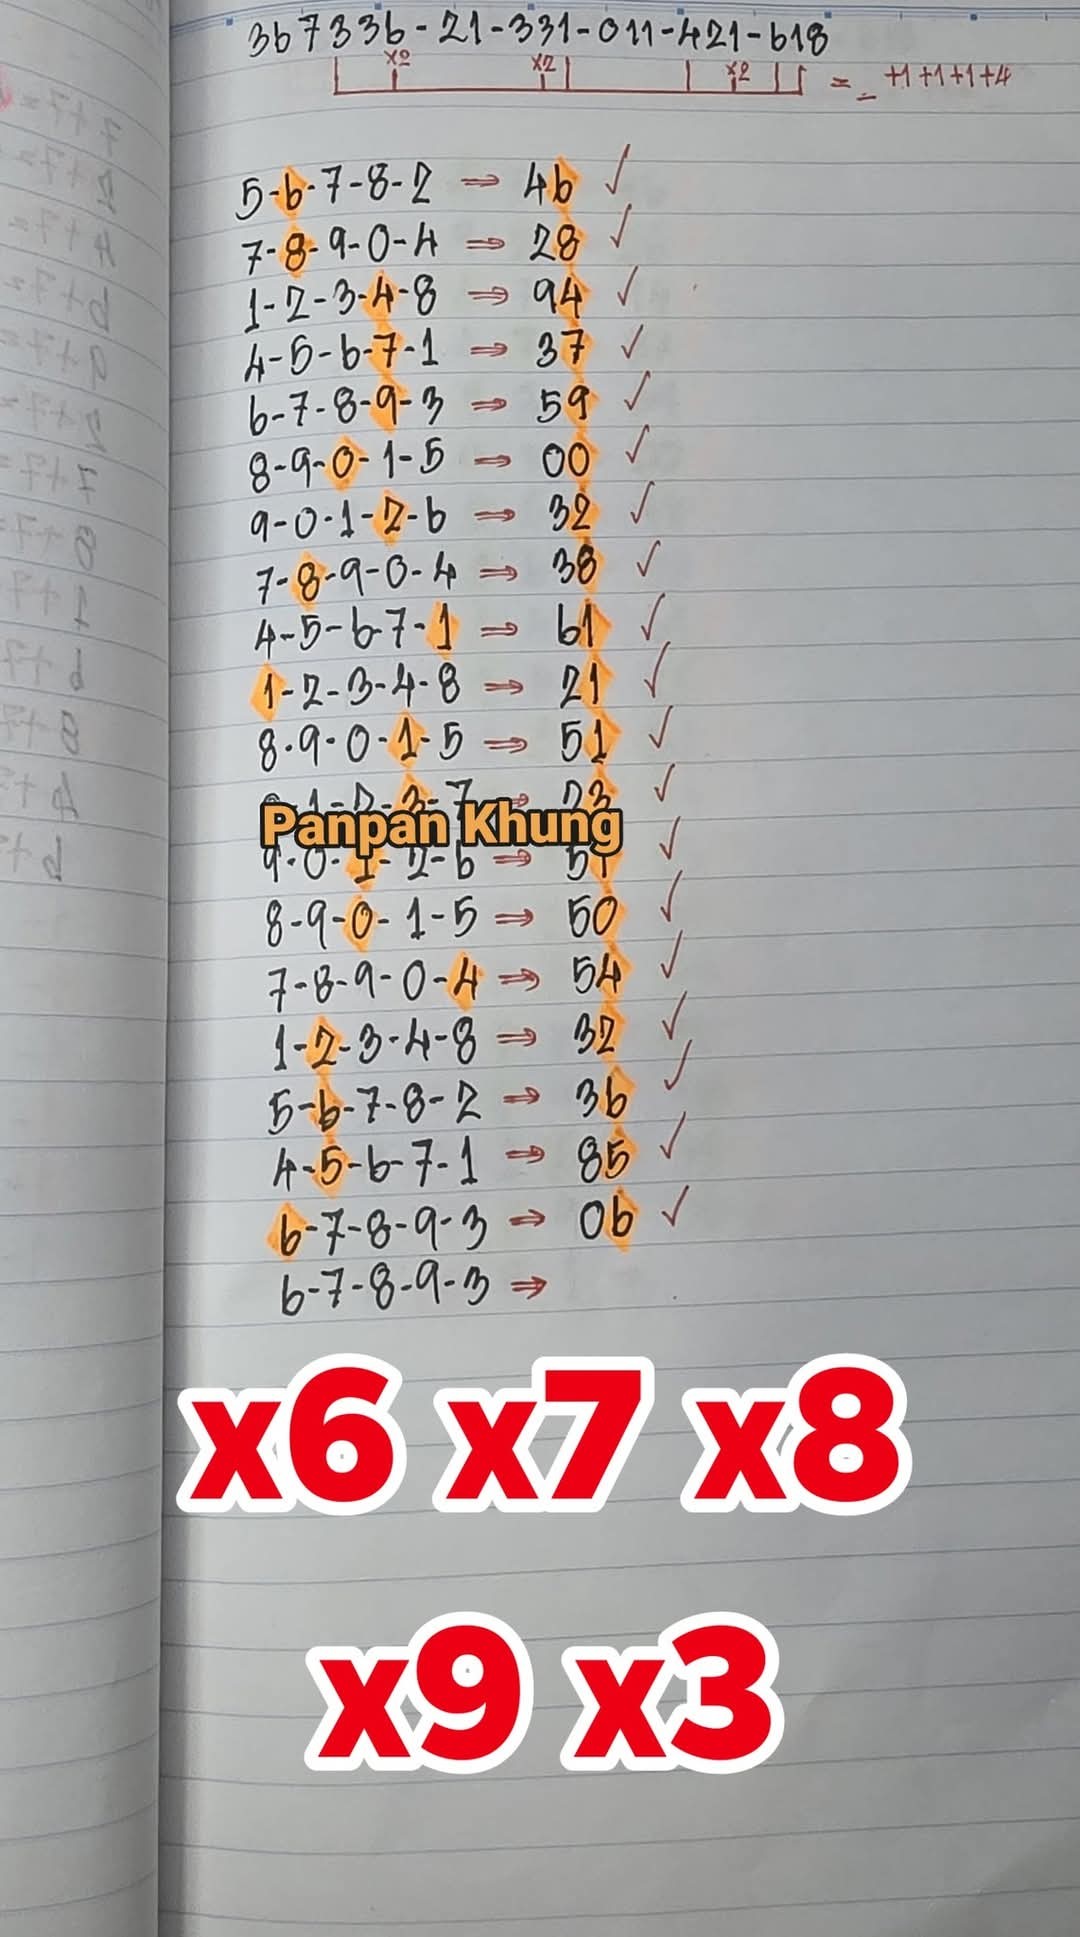 367336-21-331-011-421-618
x2 x2 x2 = +1+1+1+4
5-6-7-8-2 → 46 ✓
7-8-9-0-4 ⇒ 28 ✓
1-2-3-4-8 ⇒ 94 ✓
4-5-6-7-1 ⇒ 37 ✓
6-7-8-9-3 ⇒ 59 ✓
8-9-0-1-5 ⇒ 00 ✓
9-0-1-2-6 ⇒ 32 ✓
7-8-9-0-4 ⇒ 38 ✓
4-5-6-7-1 ⇒ 61 ✓
1-2-3-4-8 ⇒ 21 ✓
8-9-0-1-5 ⇒ 51 ✓
1-2-3-7 ⇒ 23 ✓
Panpan Khung
9-0-1-2-6 ⇒ 51 ✓
8-9-0-1-5 ⇒ 50 ✓
7-8-9-0-4 ⇒ 54 ✓
1-2-3-4-8 ⇒ 32 ✓
5-6-7-8-2 ⇒ 36 ✓
4-5-6-7-1 ⇒ 85 ✓
6-7-8-9-3 ⇒ 06 ✓
6-7-8-9-3 ⇒
x6 x7 x8
x9 x3